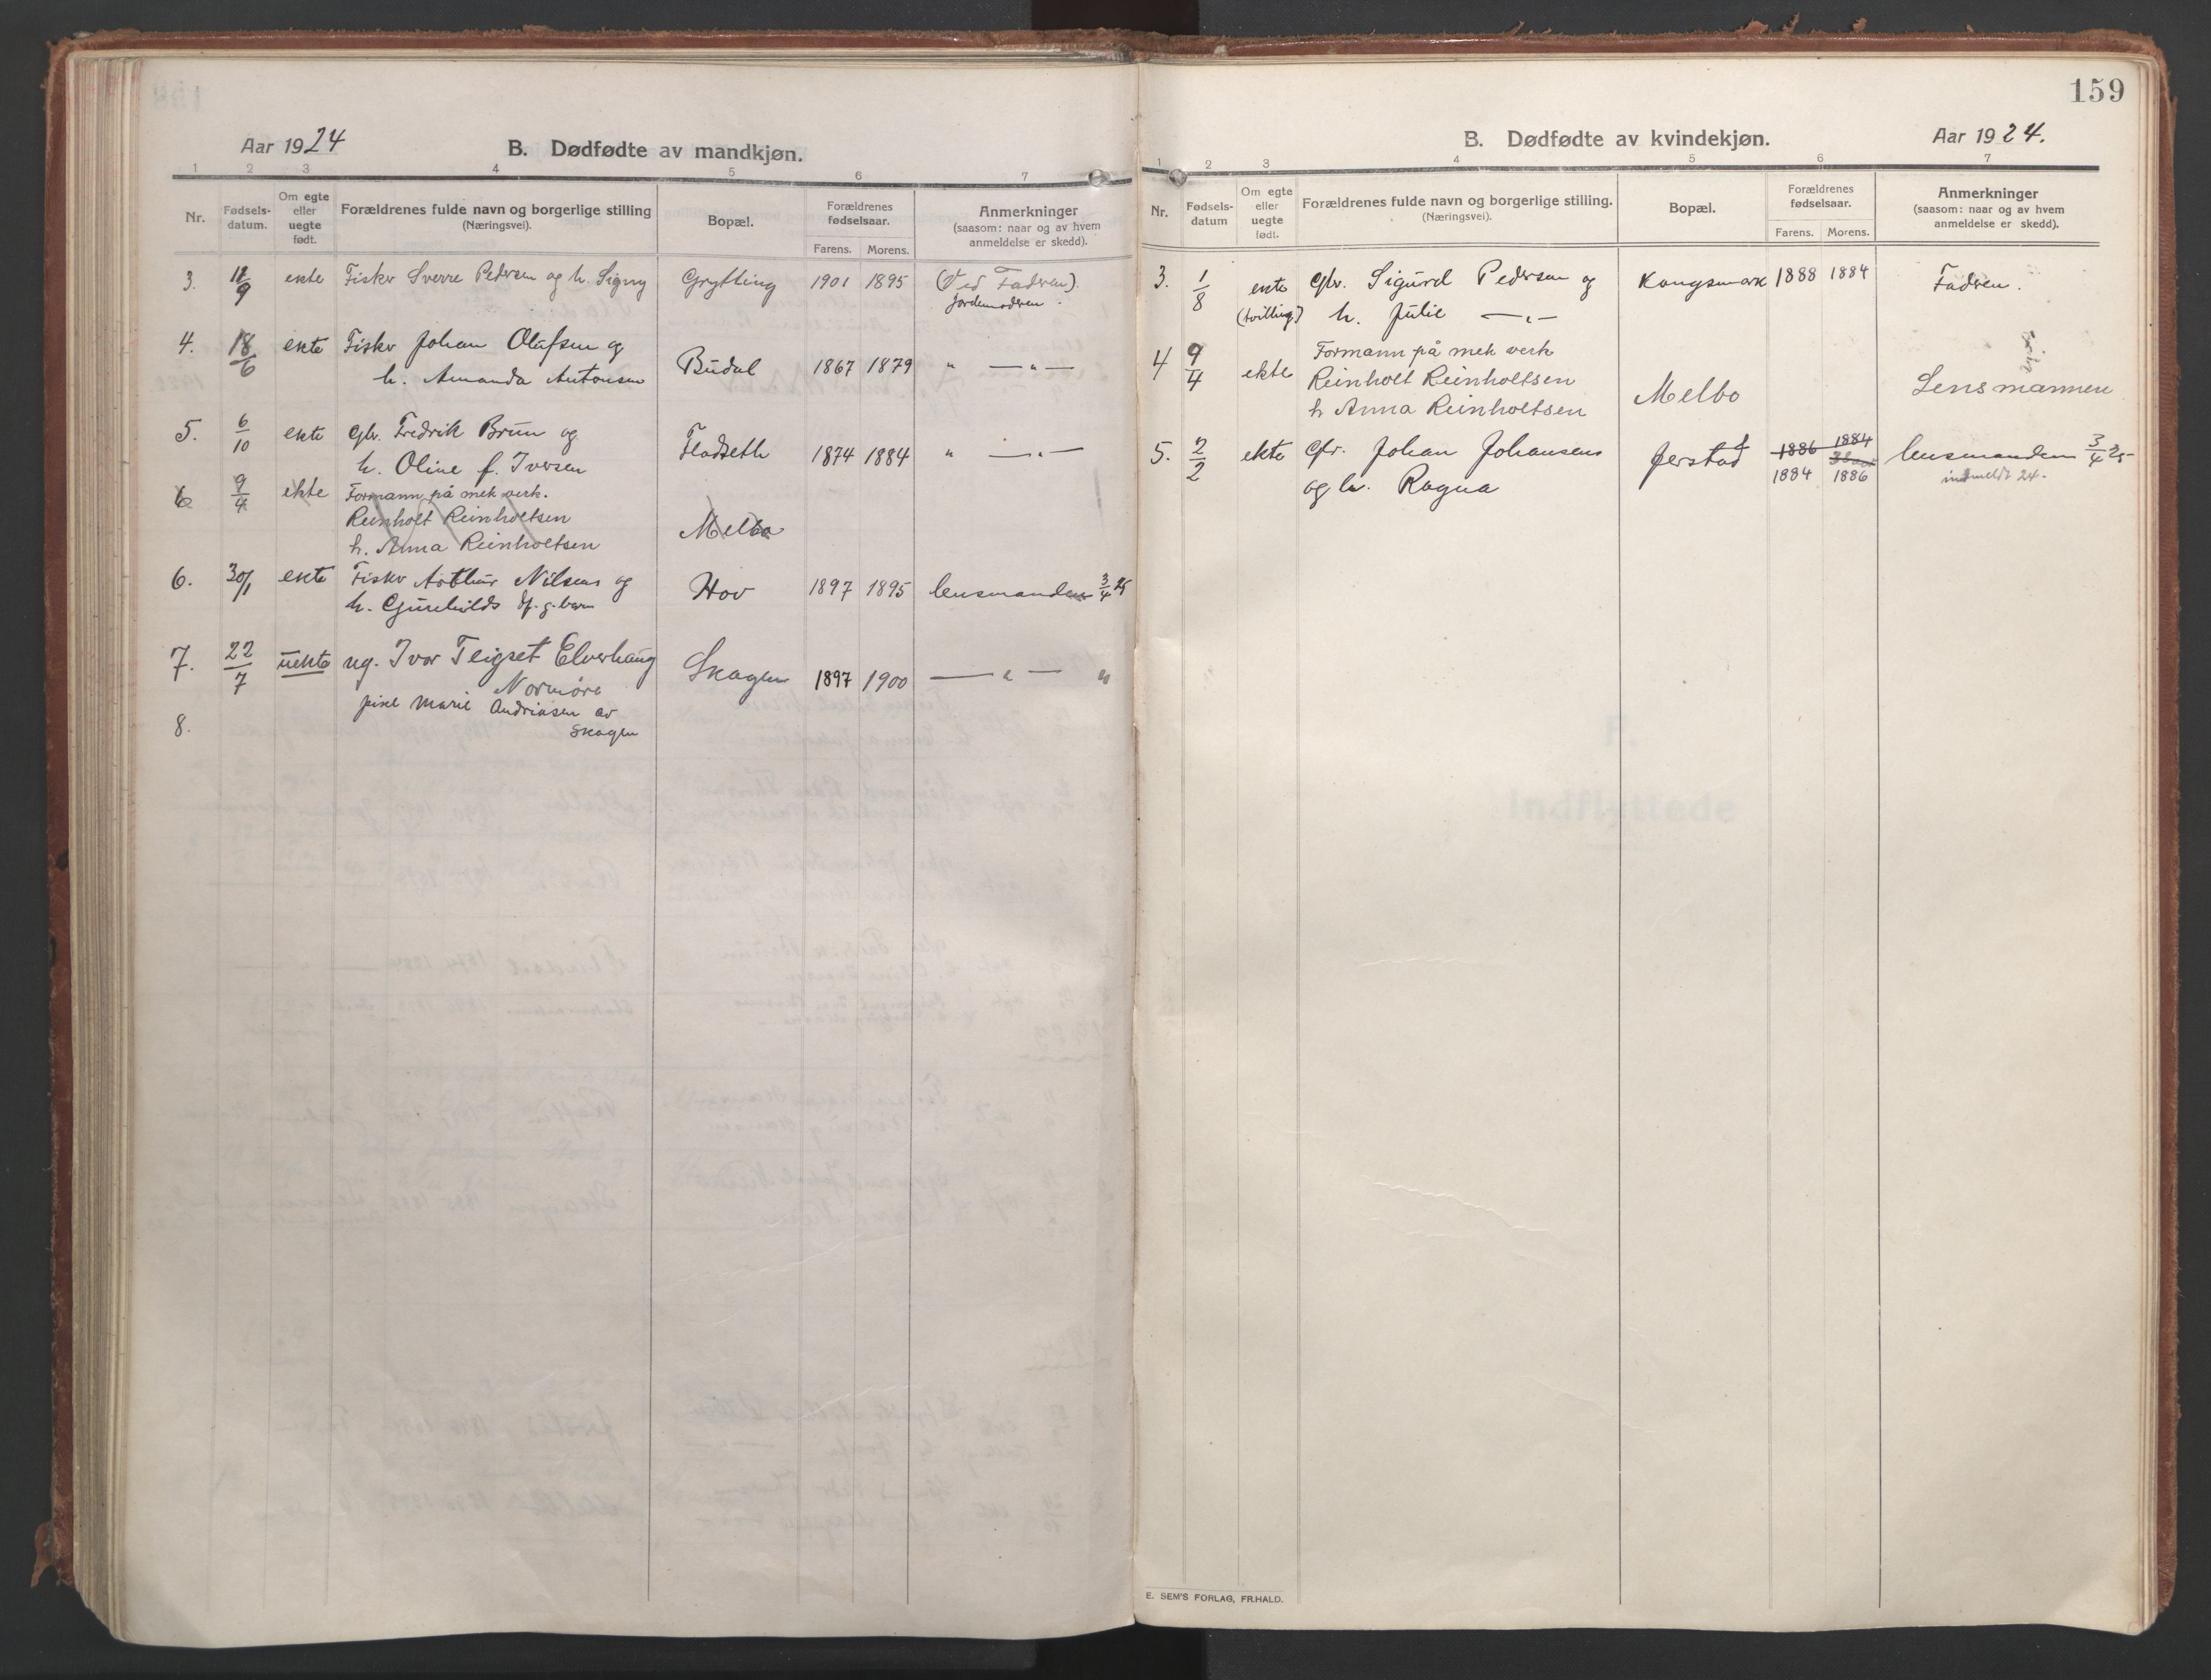 159
Aar 1924
B. Dødfødte av mandkjøn.
1 2 3 4 5 6 7
Nr.
Fødsels-
datum.
Om egte
eller
uegte
født.
Forældrenes fulde navn og borgerlige stilling
(Næringsvei).
Bopæl.
Forældrenes
fødselsaar.
Farens. Morens.
Anmerkninger
(saasom: naar og av hvem
anmeldelse er skedd).
3. 11/9 ekte Fisker Sverre Pedersen og h. Signy Grytting 1901 1895 (Ved Faderen).
jordemoderen.
4. 18/6 ekte Fisker Johan Olufsen og
h. Amanda Antonsen Budal 1867 1879 " — " —
5. 6/10 ekte Gbr. Fredrik Brun og
h. Oline f. Iversen Fladseth 1874 1884 " — " —
6 9/4 ekte Formann på mek verk.
Reinholt Reinholtsen
h. Anna Reinholtsen Melbo
6. 30/1 ekte Fisker Arthur Nilsens og
h. Gunhilds df. g. barn Hov 1897 1895 lensmanden 3/4 25
7. 22/7 uekte ug. Ivar Teigset Elverhaug
Normøre
pike Marie Andriasen av
Skagen Skagen 1897 1900 — " — "
8.
B. Dødfødte av kvindekjøn.
Aar 1924.
1 2 3 4 5 6 7
Nr.
Fødsels-
datum
Om egte
eller
uegte
født.
Forældrenes fulde navn og borgerlige stilling.
(Næringsvei).
Bopæl.
Forældrenes
fødselsaar.
Farens. Morens.
Anmerkninger
(saasom: naar og av hvem
anmeldelse er skedd).
3. 1/8 ekte Gbr. Sigurd Pedersen og Kongsmark 1888 1884 Faderen.
(tvilling) h. Julie — " —
4 9/4 ekte Formann på mek verk
Reinholt Reinholtsen
h Anna Reinholtsen Melbo Lensmannen
5. 2/2 ekte Gbr. Johan Johansens Jerstad 1886 1884 lensmanden 3/4 25
og h. Ragna 1884 1886 indmeldt 24.
E. SEM'S FORLAG, FR.HALD.